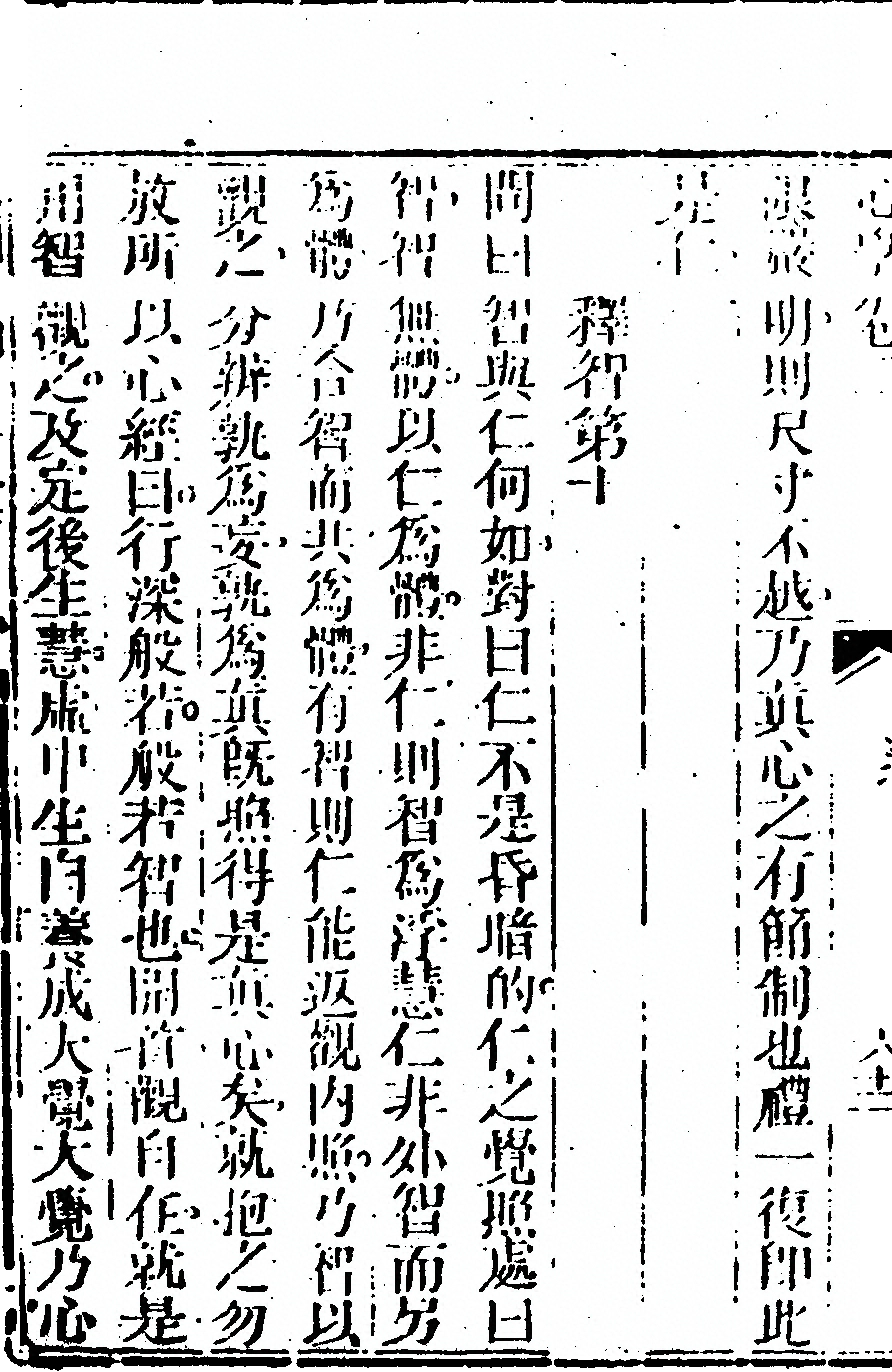 心學卷一 六十一
謹嚴明則尺寸不越乃眞心之有節制也禮一復卽此
是仁
釋智第十
問曰智與仁何如對曰仁不是昏暗的仁之覺照處曰
智智無體以仁爲體非仁則智爲浮慧仁非外智而另
爲體乃合智而共爲體有智則仁能返觀內照乃智以
觀之分辨孰爲妄孰爲眞旣照得是眞心矣就抱之勿
放所以心經曰行深般若般若智也開首觀自在就是
用智觀之及定後生慧虛中生白養成大覺大覺乃心